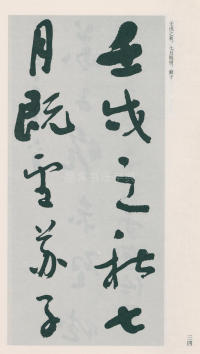 壬戌之秋，七月既望，苏子
壬戌之秋七
月既望苏子
三四